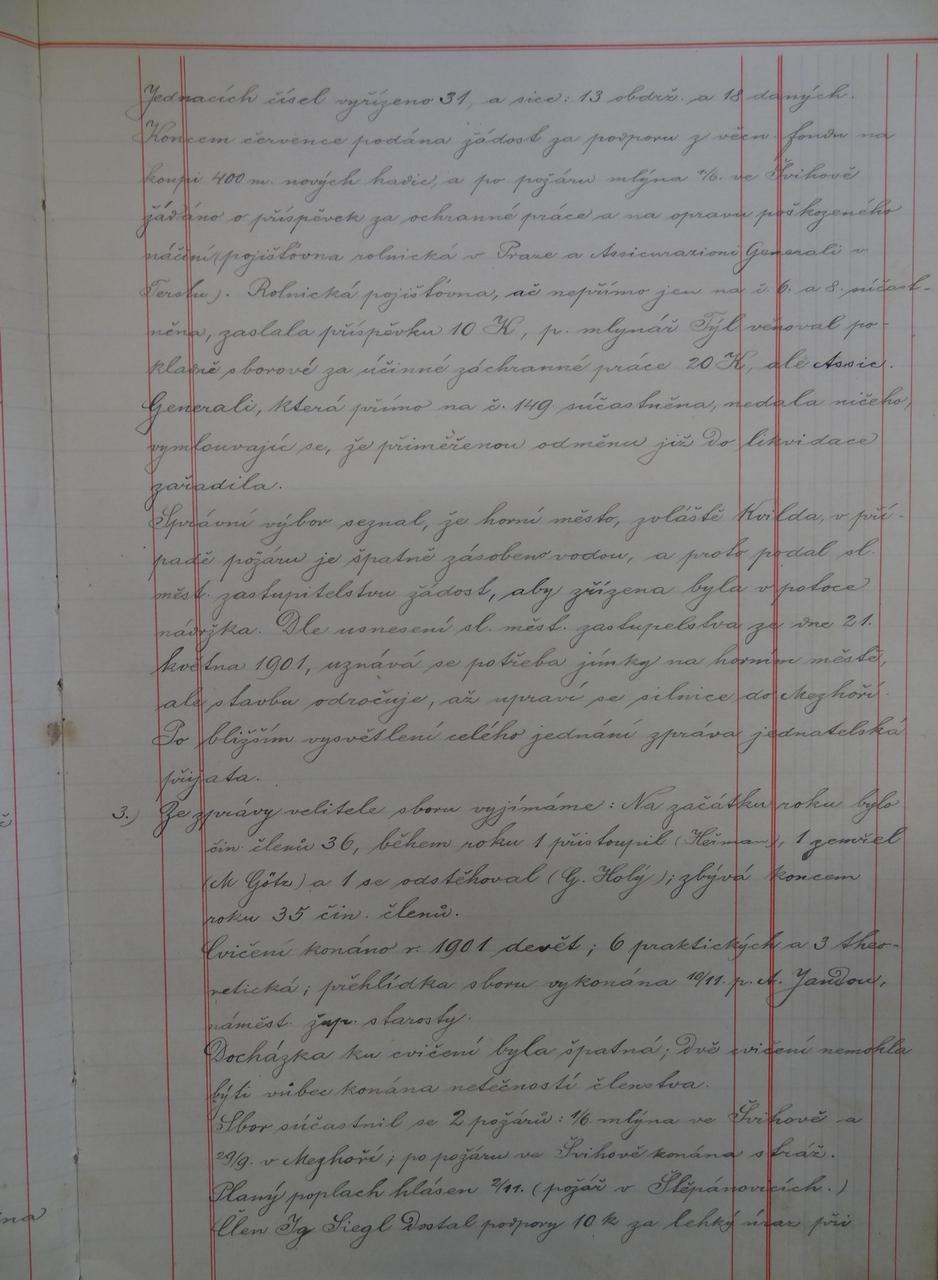 Jednacích čísel vyřízeno 31, a sice: 13 obdrž. a 18 daných.
Koncem července podána žádost za podporu z věcn. fondu na
koupi 400 m. nových hadic, a po požáru mlýna 1/6. ve Švihově
žádáno o příspěvek za ochranné práce a na opravu poškozeného
náčiní (pojišťovna rolnická v Praze a Assicurazioni Generali v
Terstu). Rolnická pojišťovna, ač nepřímo jen na č. 6. a 8. súčast-
něna, zaslala příspěvku 10 K, p. mlynář Týl věnoval po-
kladně sborové za účinné záchranné práce 20 K, ale Assic.
Generali, která přímo na č. 149 súčastněna, nedala ničeho,
vymlouvajíc se, že přiměřenou odměnu již do likvidace
zařadila.
Správní výbor seznal, že horní město, zvláště Kvilda, v pří-
padě požáru je špatně zásobeno vodou, a proto podal sl.
měst. zastupitelstvu žádost, aby zřízena byla v potoce
nádržka. Dle usnesení sl. měst. zastupelstva ze dne 21.
května 1901, uznává se potřeba jímky na horním městě,
ale stavbu odročuje, až upraví se silnice do Mezhoří.
Po bližším vysvětlení celého jednání zpráva jednatelská
přijata.
3.) Ze zprávy velitele sboru vyjímáme: Na začátku roku bylo
čin. členů 36, během roku 1 přistoupil (Heřman), 1 zemřel
(M Götz) a 1 se odstěhoval (G. Holý); zbývá koncem
roku 35 čin. členů.
Cvičení konáno r. 1901 devět; 6 praktických a 3 theo-
retická; přehlídka sboru vykonána 10/11. p. A. Jandou,
náměst. žup. starosty.
Docházka ku cvičení byla špatná; dvě cvičení nemohla
býti vůbec konána netečností členstva.
Sbor súčastnil se 2 požárů: 1/6 mlýna ve Švihově a
29/9. v Mezhoří; po požáru ve Švihově konána stráž.
Planý poplach hlásen 2/11. (požár v Štěpánovicích.)
Člen Ig Siegl dostal podpory 10 k za lehký úraz při